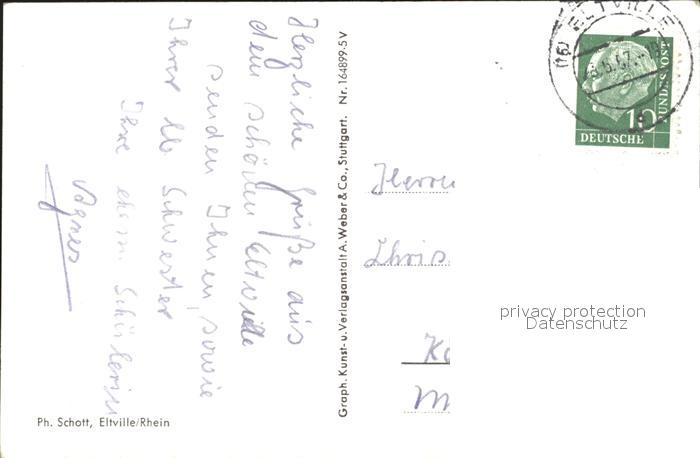 Herzliche Grüße aus
dem schönen Eltville
senden Ihnen, sowie
Ihrer lb Schwester
Ihre ehem. Schülerin
Agnes
Ph. Schott, Eltville/Rhein
Graph. Kunst- u. Verlagsanstalt A. Weber & Co., Stuttgart. Nr. 164899-5 V
ELTVILLE
10
DEUTSCHE
BUNDESPOST
Herrn
Chris
privacy protection
Datenschutz